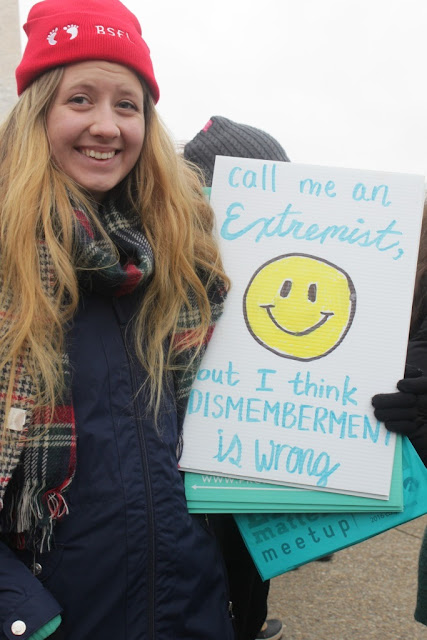 BSFL
call me an
Extremist,
but I think
DISMEMBERMENT
is wrong
meetup